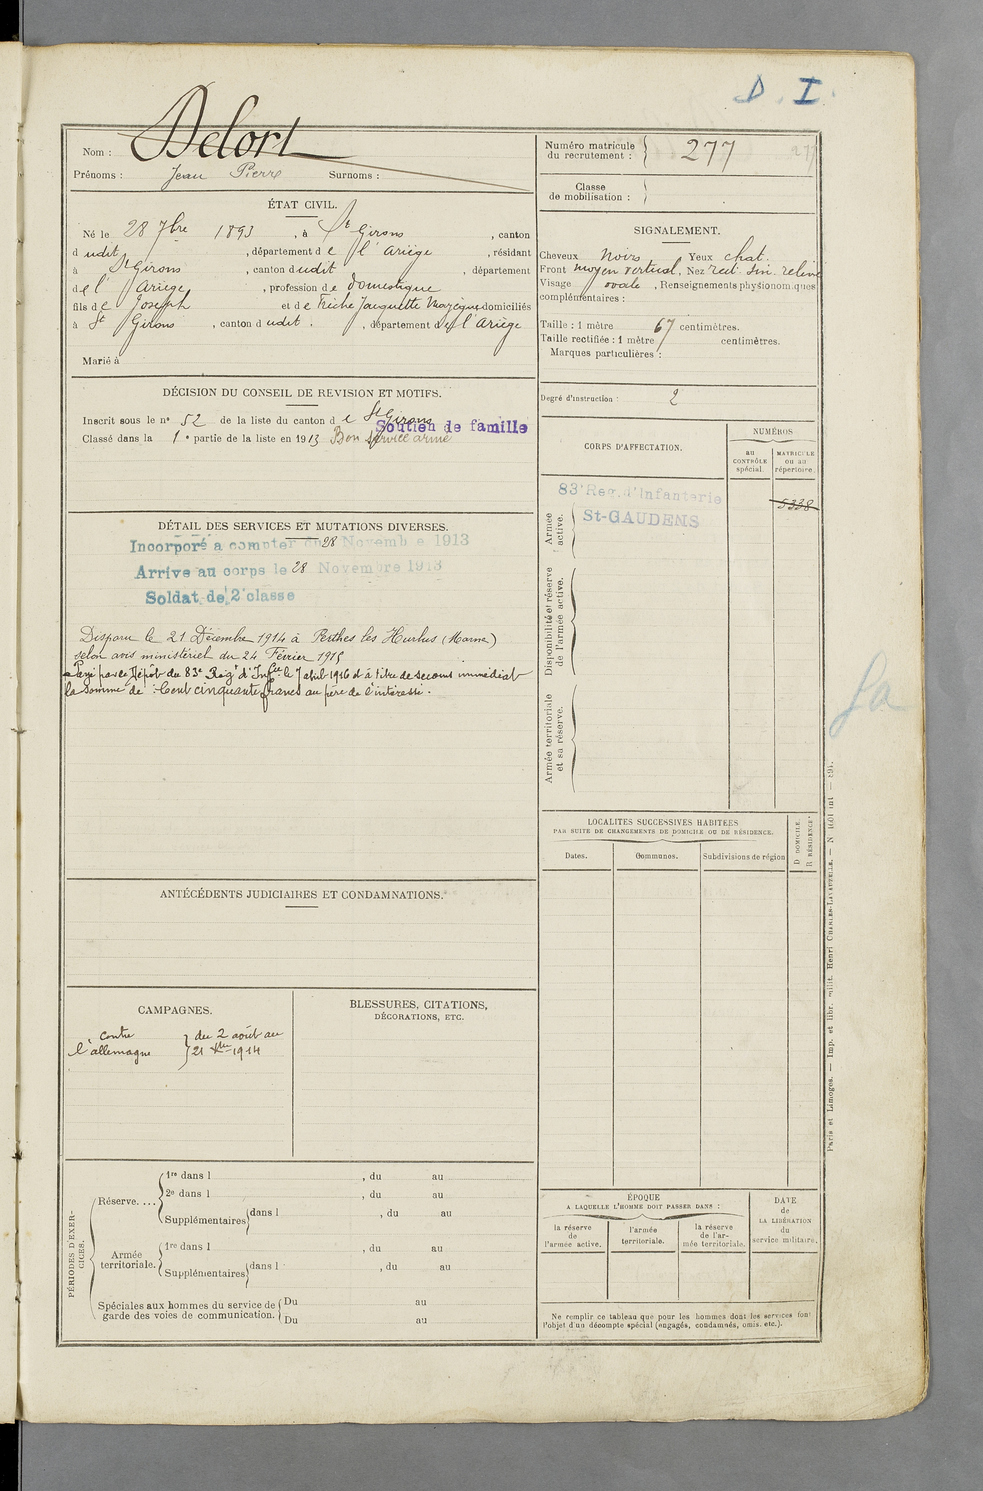 D. I.
Nom : Delort
Prénoms : Jean Pierre Surnoms :
ÉTAT CIVIL.
Né le 28 7bre 1893, à St Girons, canton
dudit, département de l'Ariège, résidant
à St Girons, canton dudit, département
de l'Ariège, profession de domestique
fils de Joseph et de Triche Jaquette domiciliés
à St Girons, canton dudit, département de l'Ariège
Marié à
DÉCISION DU CONSEIL DE REVISION ET MOTIFS.
Inscrit sous le n° 52 de la liste du canton de St Girons
Soutien de famille
Classé dans la 1e partie de la liste en 1913 Bon service armé
DÉTAIL DES SERVICES ET MUTATIONS DIVERSES.
Incorporé a compter du 28 Novembre 1913
Arrive au corps le 28 Novembre 1913
Soldat de 2e classe
Disparu le 21 Décembre 1914 à Perthes les Hurlus (Marne)
selon avis ministériel du 24 Février 1915
Payé par le Dépôt du 83e Rég't d'Infie le 7 abril 1916 et à titre de secours immédiat
la somme de : Cent cinquante francs au père de l'intéressé.
ANTÉCÉDENTS JUDICIAIRES ET CONDAMNATIONS.
CAMPAGNES.
contre l'allemagne } du 2 août au
21 Xbre 1914
BLESSURES, CITATIONS,
DÉCORATIONS, ETC.
PÉRIODES D'EXER-
CICES.
Réserve....
1re dans l , du au
2e dans l , du au
Supplémentaires dans l , du au
Armée
territoriale.
1re dans l , du au
Supplémentaires dans l , du au
Spéciales aux hommes du service de
garde des voies de communication.
Du au
Du au
Numéro matricule
du recrutement : 277
277
Classe
de mobilisation :
SIGNALEMENT.
Cheveux Noirs Yeux chat.
Front moyen vertical, Nez rect. sin. relevé
Visage ovale, Renseignements physionomiques
complémentaires :
Taille : 1 mètre 67 centimètres.
Taille rectifiée : 1 mètre centimètres.
Marques particulières :
Degré d'instruction : 2
CORPS D'AFFECTATION.
NUMÉROS
au
CONTRÔLE
spécial.
MATRICULE
ou au
répertoire.
83e Reg. d'Infanterie
St-GAUDENS
5338
Armée
active.
Disponibilité et réserve
de l'armée active.
Armée territoriale
et sa réserve.
LOCALITÉS SUCCESSIVES HABITÉES
PAR SUITE DE CHANGEMENTS DE DOMICILE OU DE RÉSIDENCE.
Dates.
Communes.
Subdivisions de région
D DOMICILE.
R RÉSIDENCE.
ÉPOQUE
A LAQUELLE L'HOMME DOIT PASSER DANS :
la réserve
de
l'armée active.
l'armée
territoriale.
la réserve
de l'ar-
mée territoriale.
DATE
de
LA LIBÉRATION
du
service militaire.
Ne remplir ce tableau que pour les hommes dont les services font
l'objet d'un décompte spécial (engagés, condamnés, omis, etc.).
Paris et Limoges. — Imp. et libr. milit. Henri CHARLES-LAVAUZELLE.